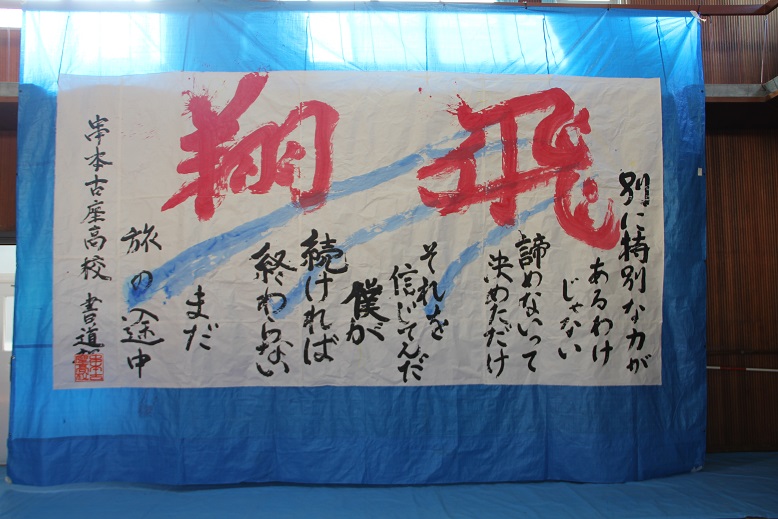 飛翔
別に特別な力が
あるわけ
じゃない
諦めないって
決めただけ
それを
信じてんだ
僕が
続ければ
終わらない
まだ
旅の途中
串本古座高校 書道部